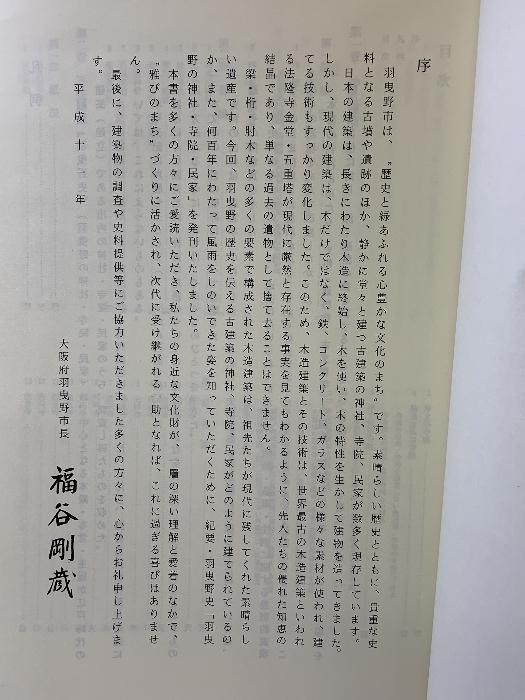 序
羽曳野市は、〝歴史と緑あふれる心豊かな文化のまち〟です。素晴らしい歴史とともに、貴重な史
料となる古墳や遺跡のほか、静かに堂々と建つ古建築の神社、寺院、民家が数多く現存しています。
日本の建築は、長きにわたり木造に終始し、木を使い、木の特性を生かして建物を造ってきました。
しかし、現代の建築は、木だけではなく、鉄、コンクリート、ガラスなどの様々な素材が使われ、建
てる技術もすっかり変化しました。このため、木造建築とその技術は、世界最古の木造建築といわれ
る法隆寺金堂・五重塔が現代に厳然と存在する事実を見てもわかるように、先人たちの優れた知恵の
結晶であり、単なる過去の遺物として捨て去ることはできません。
梁・桁・肘木などの多くの要素で構成された木造建築は、祖先たちが現代に残してくれた素晴らし
い遺産です。今回、羽曳野の歴史を伝える古建築の神社、寺院、民家がどのように建てられているの
か、また、何百年にわたって風雨をしのいできた姿を知っていただくために、紀要・羽曳野史「羽曳
野の神社・寺院・民家」を発刊いたしました。
本書を多くの方々にご愛読いただき、私たちの身近な文化財が、一層の深い理解と愛着のなかで、の
〝雅びのまち〟づくりに活かされ、次代に受け継がれる一助となれば、これに過ぎる喜びはありませ
ん。
最後に、建築物の調査や史料提供等にご協力いただきました多くの方々に、心からお礼申し上げま
す。
平成十一年
大阪府羽曳野市長
福谷剛蔵